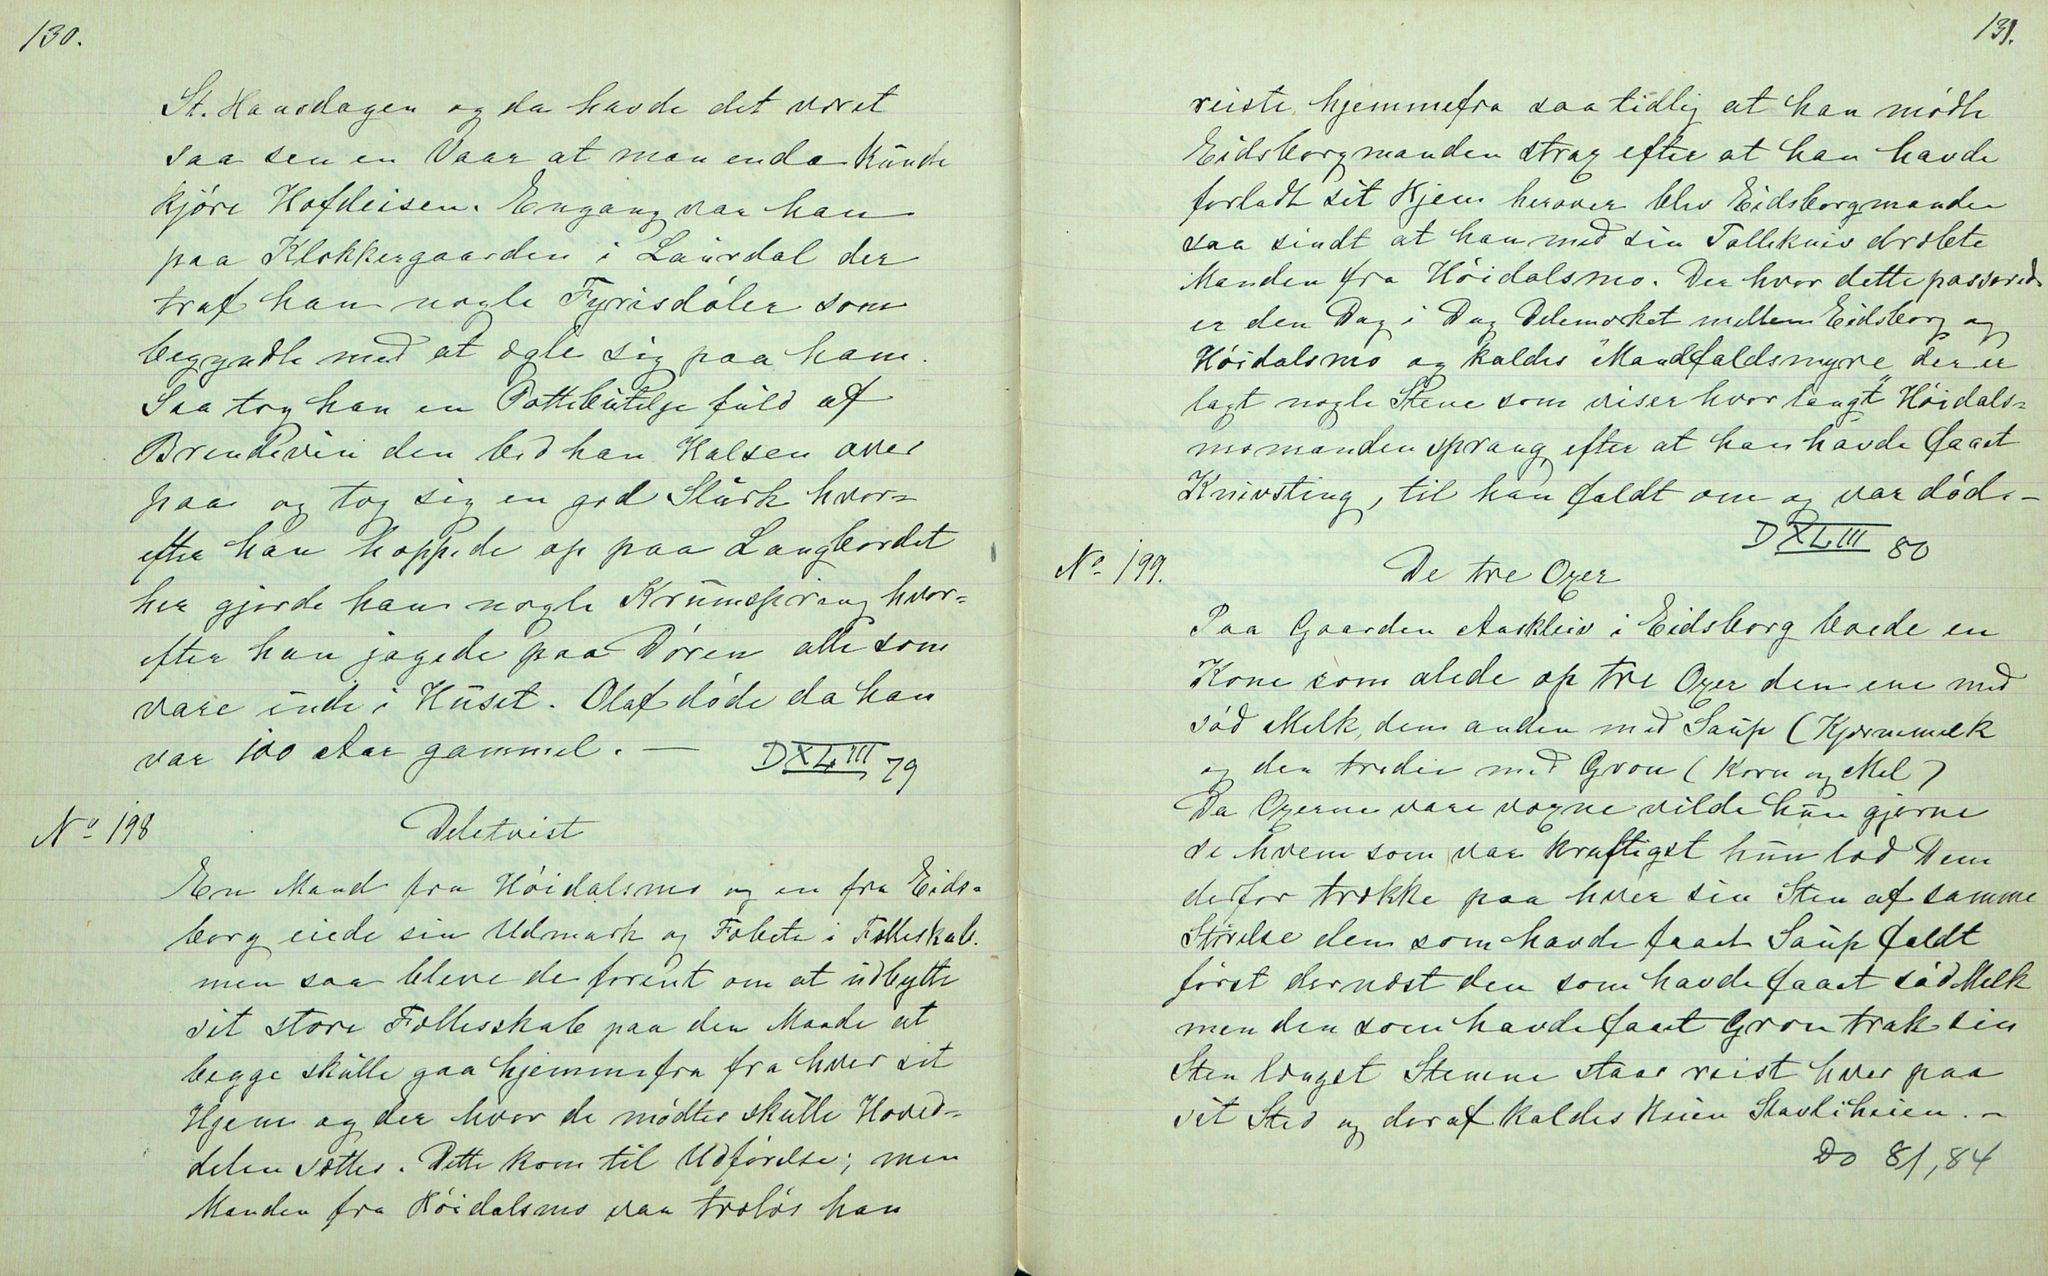 130.
St. Hansdagen og da havde det været
saa sen en Vaar at man enda kunde
kjøre Hofdeisen. Engang var han
paa Klokkergaarden i Laurdal der
traf han nogle Fyrisdøler som
begyndte med at egle sig paa ham.
Saa tog han en Pottebutelje fuld af
Brendevin den bed han Halsen over
paa og tog sig en god Slurk hvor=
efter han hoppede op paa Langbordet
her gjorde han nogle Krumspring hvor=
efter han jagede paa Døren alle som
vare inde i Huset. Olaf døde da han
var 100 Aar gammel. —
DXLIII 79
No 198
Deletvist
En Mand fra Høidalsmo og en fra Eids=
borg eiede sin Udmark og Febeite i Fælleskab.
men saa bleve de forent om at udbytte
sit store Fællesskab paa den Maade at
begge skulle gaa hjemmefra fra hver sit
Hjem og der hvor de mødtes skulle Hoved=
delen sættes. Dette kom til Udførelse; men
Manden fra Høidalsmo var troløs han
131.
reiste hjemmefra saa tidlig at han mødte
Eidsborgmanden strax efter at han havde
forladt sit Hjem herover blev Eidsborgmanden
saa sindt at han med sin Tollekniv dræbte
Manden fra Høidalsmo. Der hvor dette passerede
er den Dag i Dag Delemærket mellem Eidsborg og
Høidalsmo og kaldes "Mandfaldsmyre" der er
lagt nogle Stene som viser hvor langt Høidals=
momanden sprang efter at han havde faaet
Knivsting, til han faldt om og var død. —
DXLIII 80
No 199.
De tre Oxer
Paa Gaarden Aaskleiv i Eidsborg boede en
Kone som alede op tre Oxer den ene med
sød Melk, den anden med Saup (Kjernemelk
og den tredie med Gron (Korn og Mel)
Da Oxerne vare voxne vilde hun gjerne
se hvem som var kraftigst hun lod Dem
derfor trække paa hver sin Sten af samme
Størelse den som havde faaet Saup faldt
først dernæst den som havde faaet sød Melk
men den som havde faaet Gron trak sin
Sten længst Stenene staar reist hver paa
sit Sted og deraf kaldes Heien Stavliheien. —
Do 81, 84